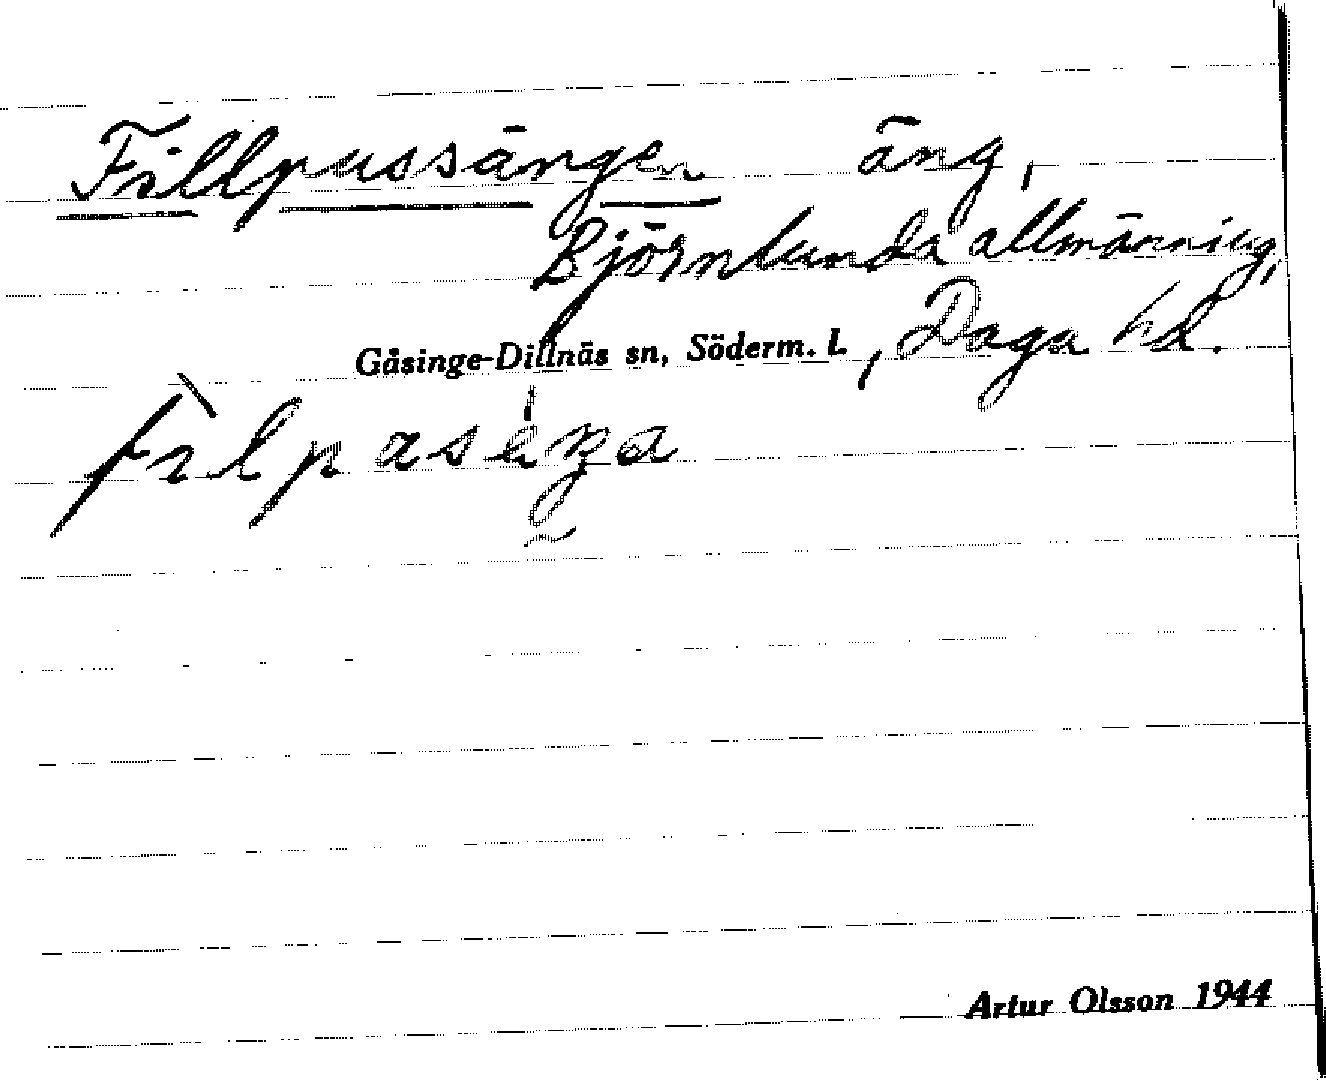 Fillpussängen äng,
Björnlunda allmänning,
Gåsinge-Dillnäs sn, Söderm. l., Daga hd.
Artur Olsson 1944